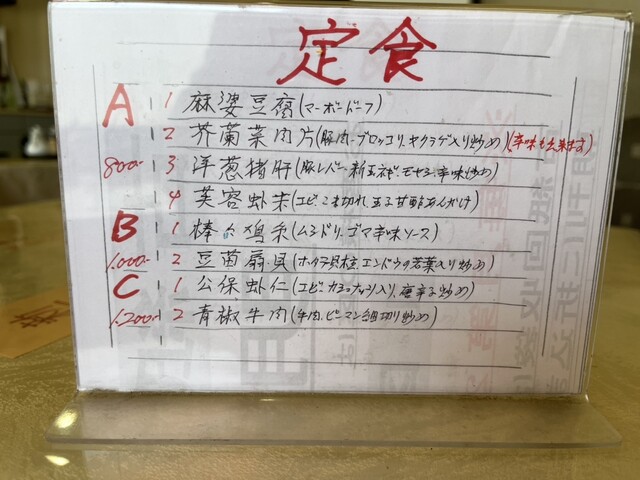 定食
A 1 麻婆豆腐(マーボードーフ)
2 芥蘭菜肉片(豚肉、ブロッコリ、キクラゲ入り炒め)(辛味も出来ます)
800- 3 洋葱猪肝(豚レバー、新玉ネギ、モヤシ、辛味炒め)
4 芙容虾末(エビこま切れ、玉子甘酢あんかけ)
B 1 棒々鳮糸(ムシドリ、ゴマ辛味ソース)
1.000- 2 豆苗扇貝(ホタテ貝柱、エンドウの若葉入り炒め)
C 1 公保虾仁(エビ、カシューナッツ入り、唐辛子炒め)
1.200- 2 青椒牛肉(牛肉、ピーマン細切り炒め)